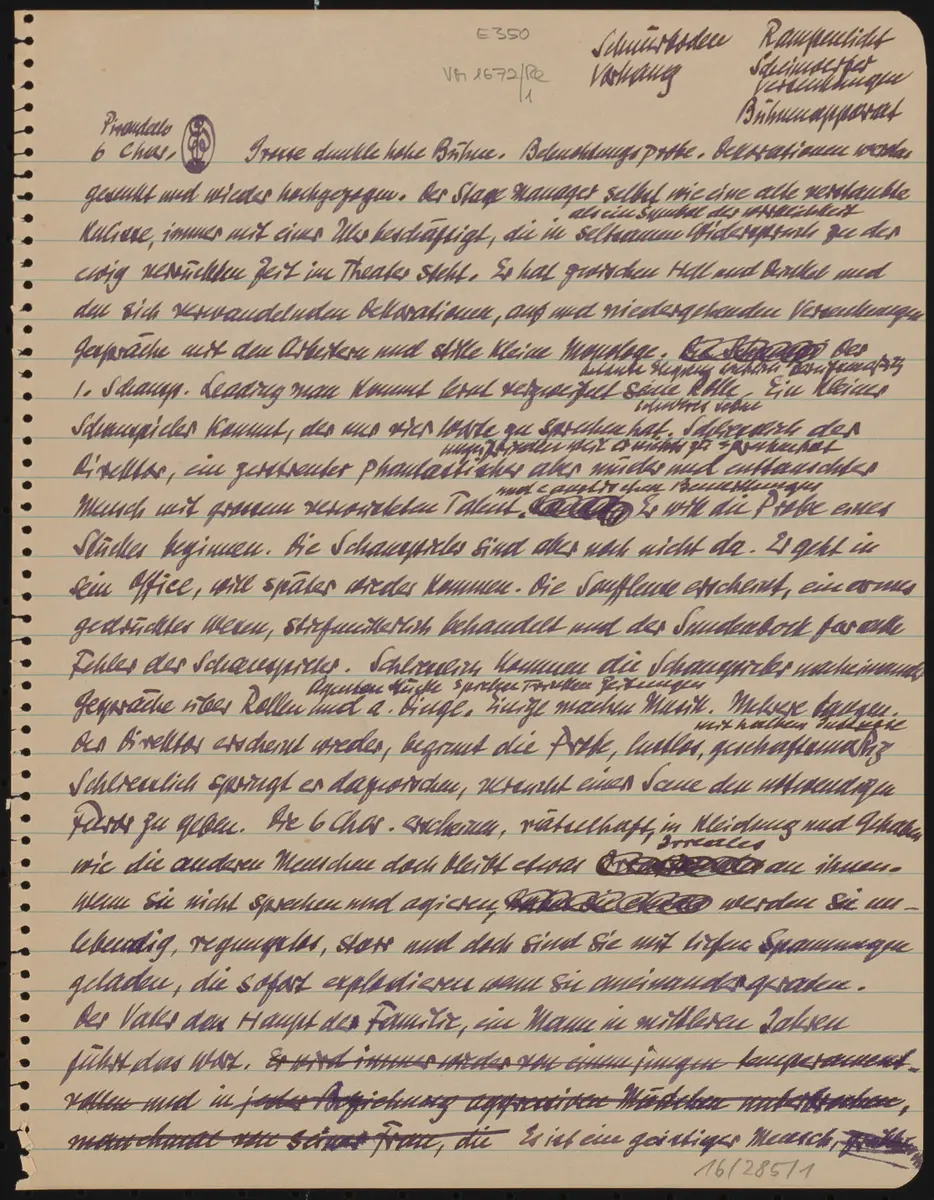 E350
VM 1672/Re
/1
Schnürboden Rampenlicht
Vorhang Scheinwerfer
Versenkungen
Bühnenapparat
Pirandello
6 Char. Grosse dunkle hohe Bühne. Beleuchtungsprobe. Dekorationen werden
gesenkt und wieder hochgezogen. Der Stage Manager selbst wie eine alte verstaubte
als ein Symbol der
Kulisse, immer mit einer Uhr beschäftigt, die in seltsamen Widerspruch zu der
ewig verrückten Zeit im Theater steht. Er hat zwischen Hell und Dunkel und
den sich verwandelnden Dekorationen, auf und niedergehenden Versenkungen
Gespräche mit den Arbeitern und stille kleine Monologe. Der
1. Schausp. Leading man kommt lernt verzweifelt seine Rolle. Ein kleiner
Schauspieler kommt, der nur vier Worte zu sprechen hat. Schliesslich der
unzufrieden weil er nichts zu sprechen hat
Direktor, ein zerstreuter phantastischer aber müder und enttäuschter
und Bemerkungen
Mensch mit grossem Talent. Er will die Probe eines
Stückes beginnen. Die Schauspieler sind aber noch nicht da. Er geht in
sein Office, will später wieder kommen. Die Souffleuse erscheint, ein armes
gedrücktes Wesen, stiefmütterlich behandelt und der Sündenbock für alle
Fehler der Schauspieler. Schliesslich kommen die Schauspieler nacheinander
Zeitungen
Gespräche über Rollen und a. Dinge. Einige machen Musik. Mehrere tanzen.
mit halber
Der Direktor erscheint wieder, beginnt die Probe, lustlos, geschäftsmäßig
Schliesslich springt er dazwischen, versucht einer Scene den notwendigen
Furor zu geben. Die 6 Char. erscheinen, rätselhaft, in Kleidung und Gehaben
Irreales
wie die anderen Menschen doch bleibt etwas an ihnen.
Wenn sie nicht sprechen und agieren, werden sie un-
lebendig, regungslos, starr und doch sind sie mit tiefen Spannungen
geladen, die sofort explodieren wenn sie aneinandergeraten.
Der Vater das Haupt der Familie, ein Mann in mittleren Jahren
führt das Wort. Er wird immer wieder von einem jungen temperament-
vollen und in jeder Beziehung aggressiven Mädchen unterbrochen,
manchmal von seiner Frau, die Es ist ein geistiger Mensch,
16/285/1